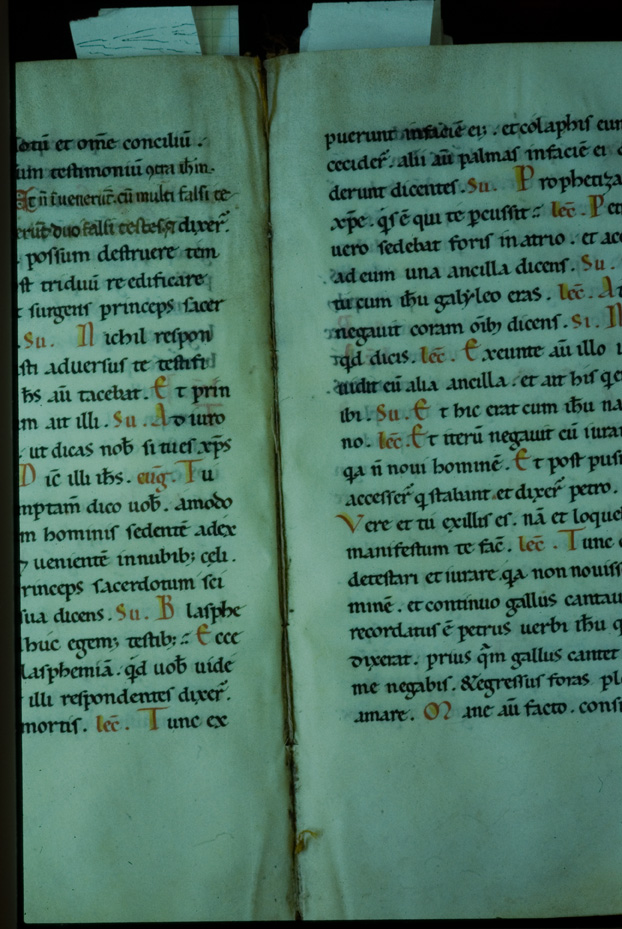 et om̄e conciliū .
um testimoniū ꝯtra ihm̄.
Et n̄ īuenerūt. cū multi falsi te
duo falsi testes dixer̄.
possum destruere tem
st triduū reedificare
surgens princeps sacer
. Su. Nichil respon
sti adversus te testifi
hs aū tacebat. Et prin
m ait illi. Su. Adiuro
ut dicas nob̄ si tu es xp̄s
Dic̄ illi ihs. euḡ. Tu
mptam̄ dico uob̄. amodo
m hominis sedentē adex
uenientē innubib; celi.
rinceps sacerdotum sci
sua dicens. Su. Blasphe
huc egem; testib; : Ecce
lasphemiā. qd̄ uob̄ uide
illi respondentes dixer̄.
mortis. lec̄. Tunc ex
puerunt infaciē ei; . et colaphis eum
cecider̄. alii aū palmas infaciē ei
derunt dicentes. Su. Prophetiza
xp̄e. qs̄ ē qui te ꝑcussit : lec̄. Pet
uero sedebat foris in atrio . et acc
ad eum una ancilla dicens. Su.
tu cum ihu galyleo eras. lec̄. At
negauit coram oīb; dicens. Si. N
qd dicis. lec̄. Exeunte aū illo i
uidit eū alia ancilla . et ait his q
ibi. Su. Et hic erat cum ihu na
no. lec̄. Et iterū negauit cū iura
q̄a n̄ noui hominē. Et post pusi
accesser̄ q stabant. et dixer̄ petro.
Vere et tu exillis es. nā et loque
manifestum te fac̄. lec̄. Tunc
detestari et iurare. q̄a non nouiss
minē . et continuo gallus cantau
recordatus ē petrus uerbi ihu q
dixerat. prius qm̄ gallus cantet
me negabis. &egressus foras pl
amare. Mane aū facto. consi